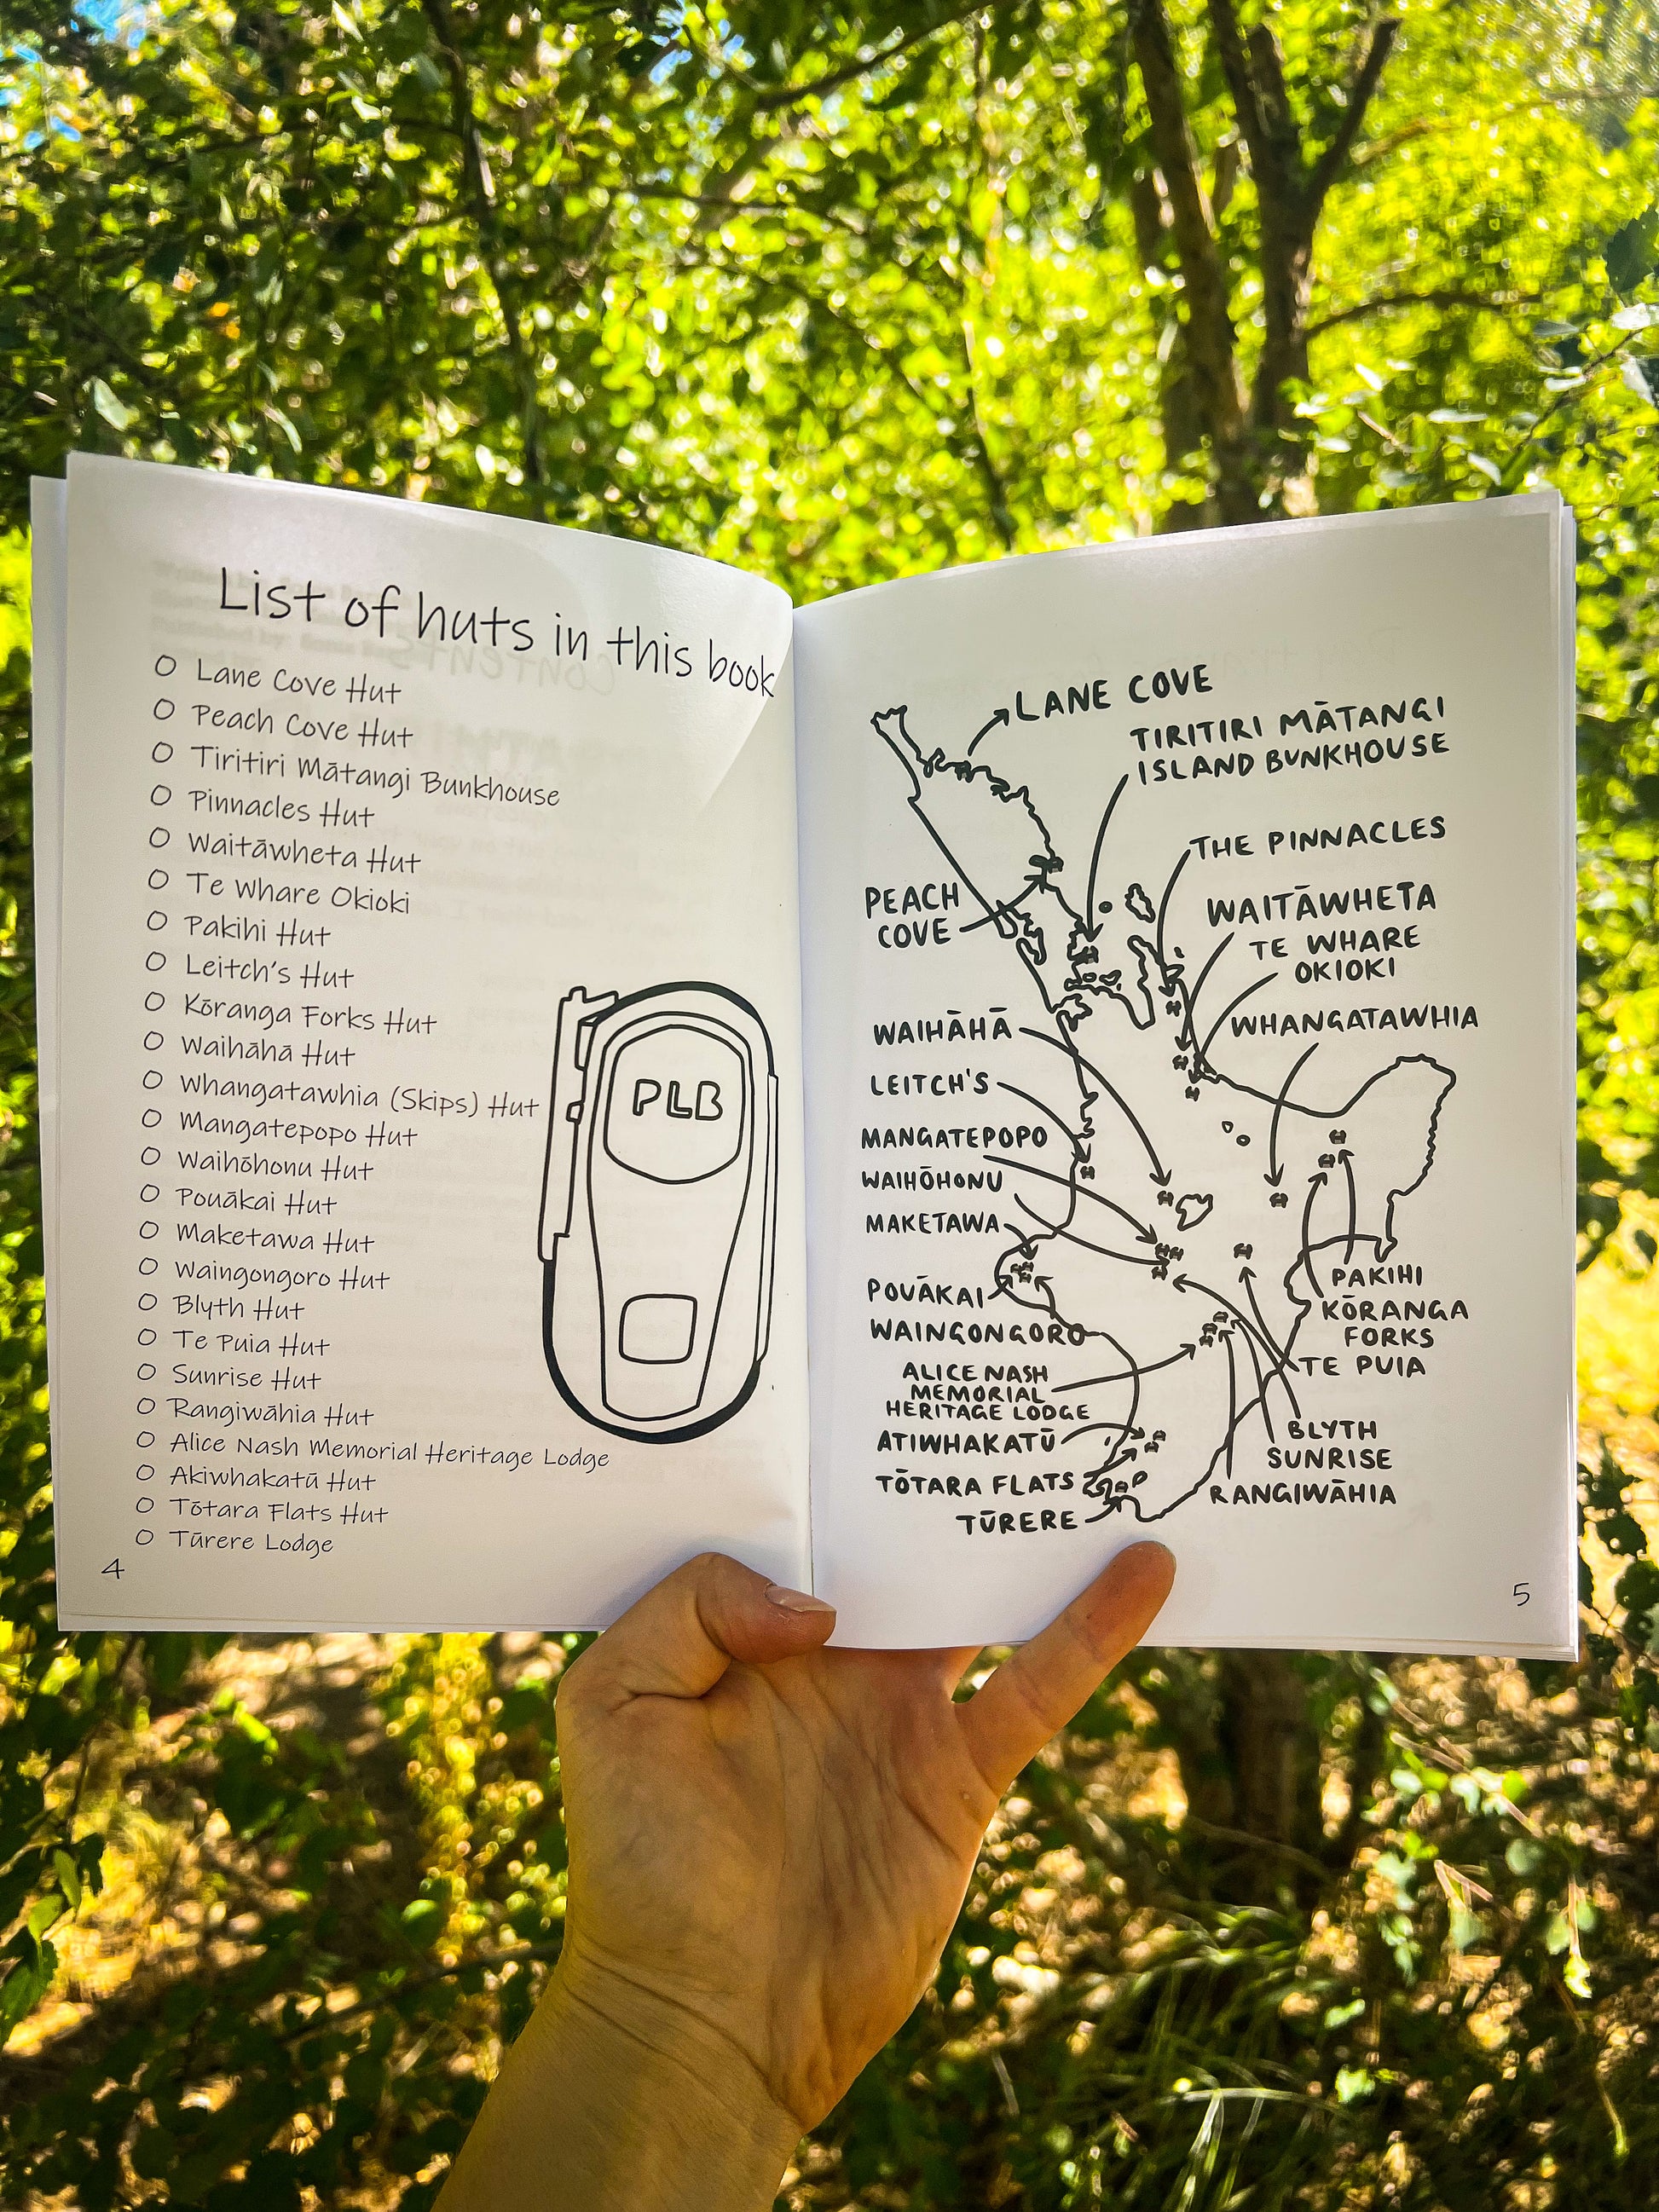 List of huts in this book
O Lane Cove Hut
O Peach Cove Hut
O Tiritiri Mātangi Bunkhouse
O Pinnacles Hut
O Waitāwheta Hut
O Te Whare Okioki
O Pakihi Hut
O Leitch's Hut
O Kōranga Forks Hut
O Waihāhā Hut
O Whangatawhia (Skips) Hut
O Mangatepopo Hut
O Waihōhonu Hut
O Pouākai Hut
O Maketawa Hut
O Waingongoro Hut
O Blyth Hut
O Te Puia Hut
O Sunrise Hut
O Rangiwāhia Hut
O Alice Nash Memorial Heritage Lodge
O Akiwhakatū Hut
O Tōtara Flats Hut
O Tūrere Lodge
PLB
4
LANE COVE
TIRITIRI MĀTANGI
ISLAND BUNKHOUSE
THE PINNACLES
PEACH
COVE
WAITĀWHETA
TE WHARE
OKIOKI
WAIHĀHĀ
WHANGATAWHIA
LEITCH'S
MANGATEPOPO
WAIHŌHONU
MAKETAWA
POUĀKAI
WAINGONGORO
PAKIHI
KŌRANGA
FORKS
TE PUIA
ALICE NASH
MEMORIAL
HERITAGE LODGE
ATIWHAKATŪ
BLYTH
SUNRISE
TŌTARA FLATS
RANGIWĀHIA
TŪRERE
5